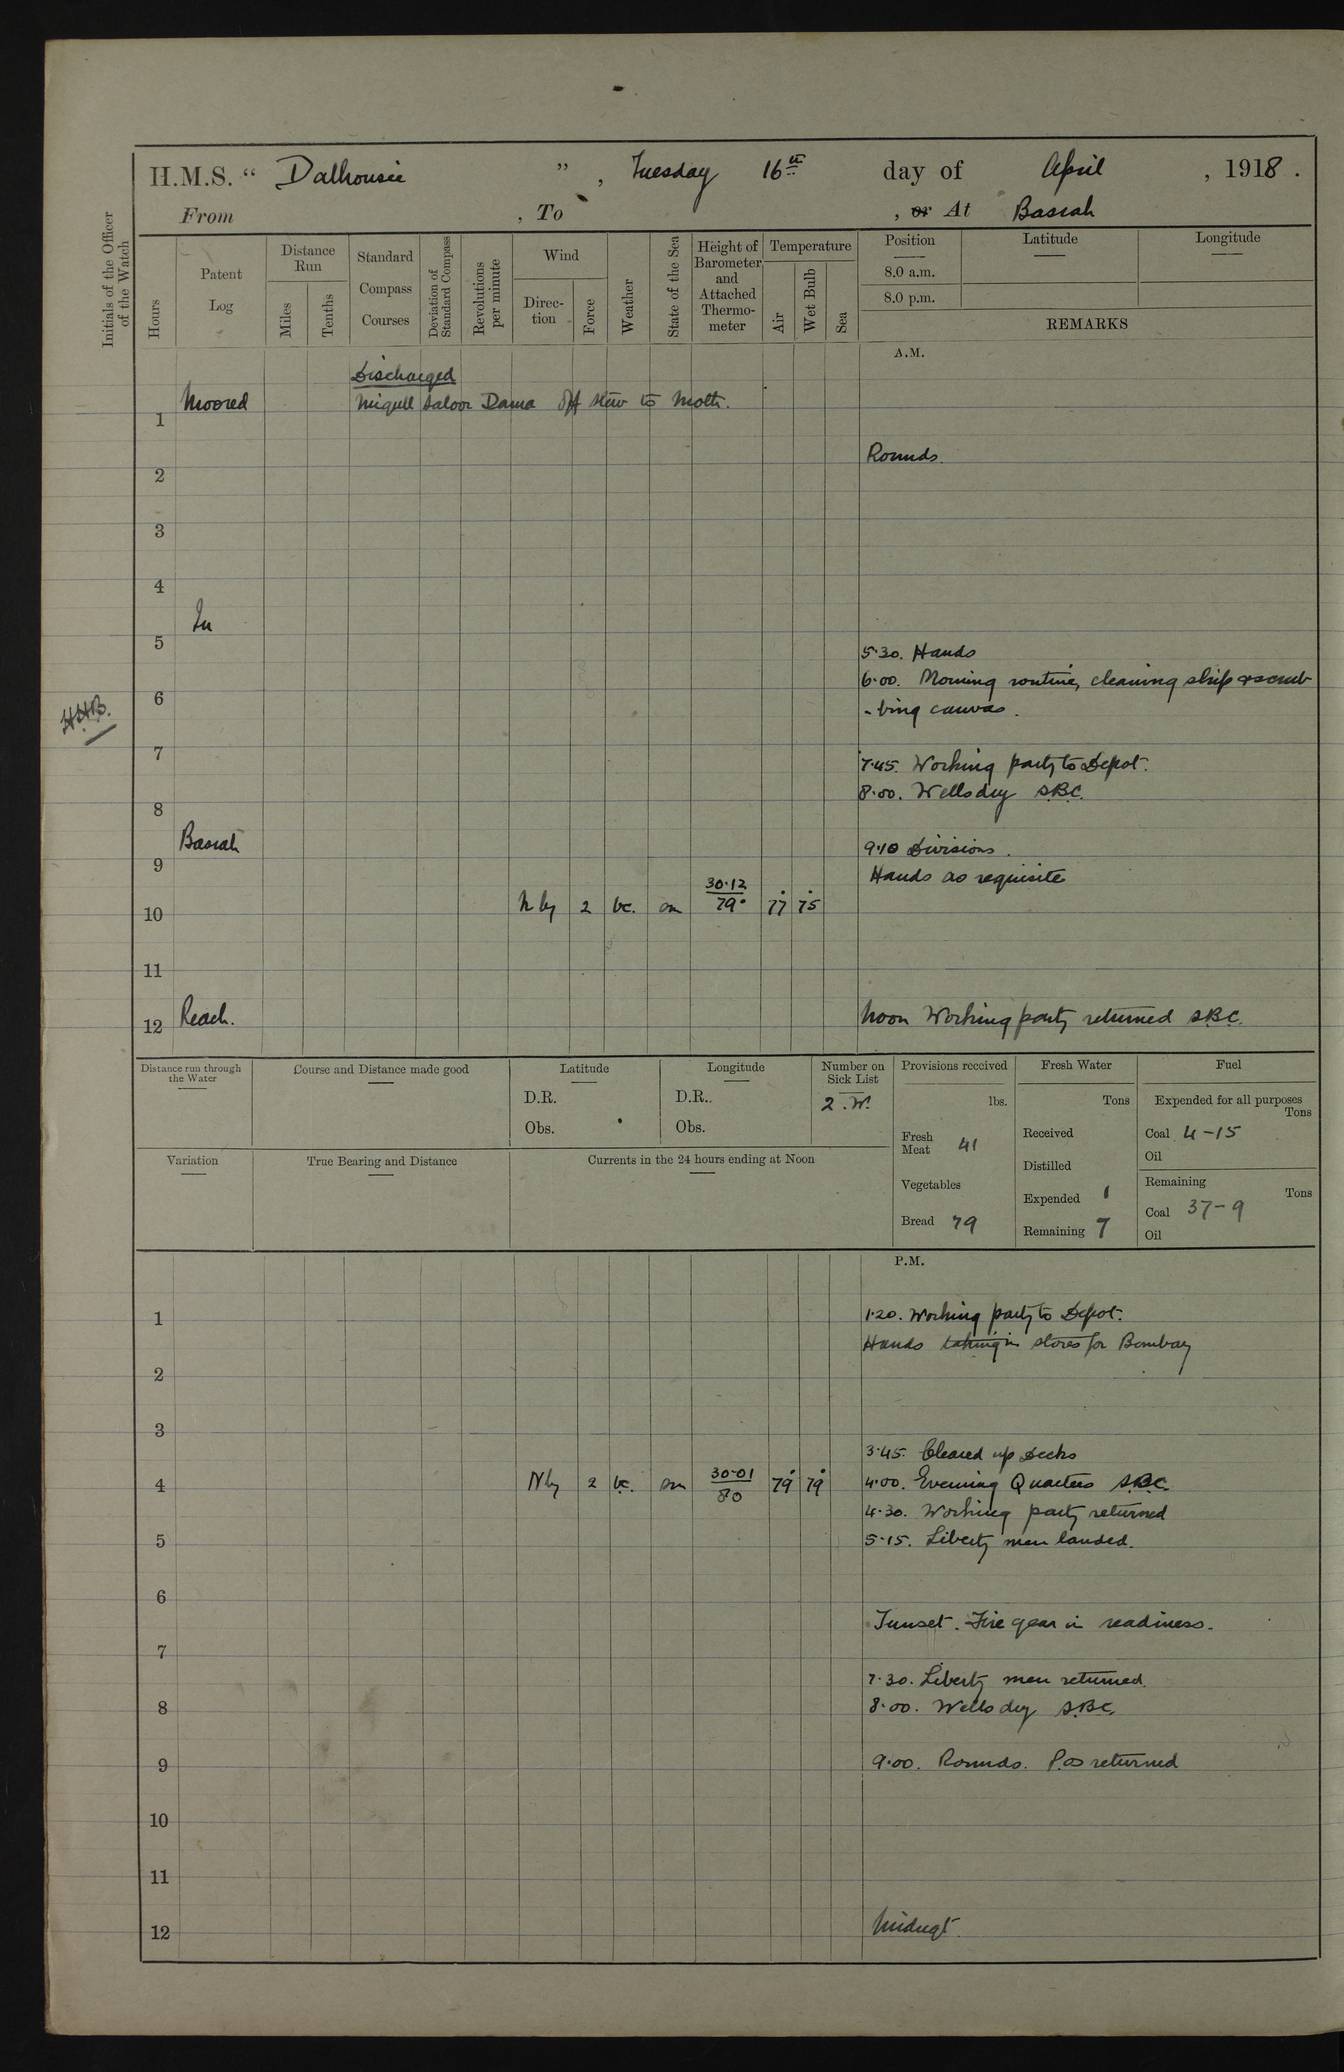 H.M.S. “ Dalhousie ” , Tuesday 16th day of April , 1918 .
From , To , or At Basrah
Initials of the Officer of the Watch
Hours
Patent Log
Distance Run
Miles
Tenths
Standard Compass Courses
Deviation of Standard Compass
Revolutions per minute
Wind
Direc-tion
Force
Weather
State of the Sea
Height of Barometer and Attached Thermo-meter
Temperature
Air
Wet Bulb
Sea
Position
8.0 a.m.
8.0 p.m.
Latitude
Longitude
REMARKS
A.M.
Discharged
1 Moored Miguell Dama off stew to Moth.
Rounds.
2
3
4
In
5
5.30. Hands
6.00. Morning routine, cleaning ship & scrub-
6
- bing canvas.
H.H.B.
7
7.45. Working party to Depot.
8.00. Wells dry S.B.C.
8
Basrah 9.10 Divisions.
9
Hands as requisite
10 N by 2 bc. sm 30.12 79° 77 75
11
12 Reach. Noon Working party returned S.B.C.
Distance run through the Water
Course and Distance made good
Latitude
D.R.
Obs.
Longitude
D.R.
Obs.
Number on Sick List
2 . W.
Provisions received
lbs.
Fresh Meat 41
Vegetables
Bread 79
Fresh Water
Tons
Received
Distilled
Expended 1
Remaining 7
Fuel
Expended for all purposes
Tons
Coal 4-15
Oil
Remaining
Tons
Coal 37-9
Oil
Variation
True Bearing and Distance
Currents in the 24 hours ending at Noon
P.M.
1 1.20. Working party to Depot.
Hands taking in stores for Bombay
2
3
3.45. Cleared up Decks
4 N by 2 bc. sm 30.01 80 79 79 4.00. Evening Quarters S.B.C.
4.30. Working party returned
5 5.15. Liberty men landed.
6
Sunset. Fire gear in readiness.
7
7.30. Liberty men returned.
8 8.00. Wells dry S.B.C.
9 9.00. Rounds. P.Os returned
10
11
12 Midngt.